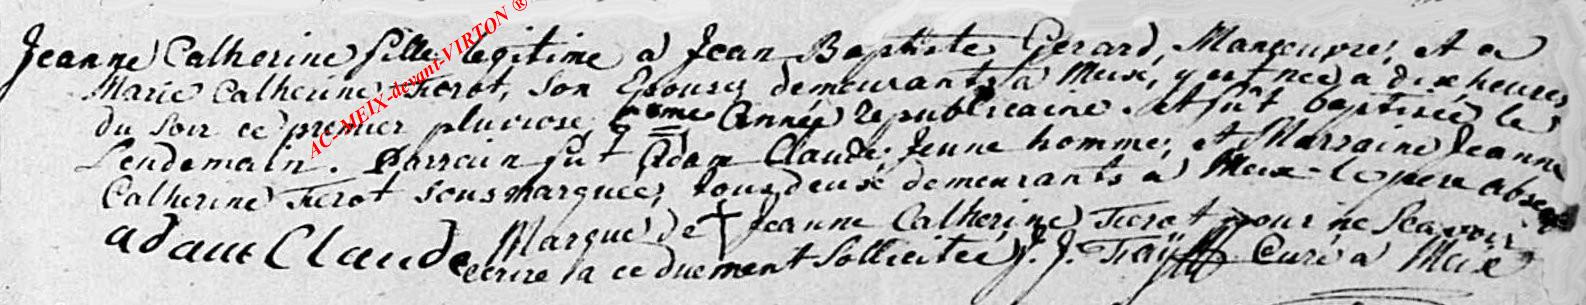 Jeanne Catherine fille legitime a Jean Baptiste Gerard, Manoeuvre, et a
Marie Catherine Tierot, Son Epouse, demeurants a Meix, y est née a dix heures
du Soir ce premier pluviose, Année republicaine. et fut baptisée le
Lendemain. Parrain fut Adam Claude, Jeune homme, et Marraine Jeanne
Catherine Tierot sousmarquée, tous deux demeurants a Meix - le pere absent
adam Claude Marque de + Jeanne Catherine Tierot pour ne Scavoir
ecrire a ce duement Sollicitée J. J. Curé a Meix
AC-MEIX-devant-VIRTON ®